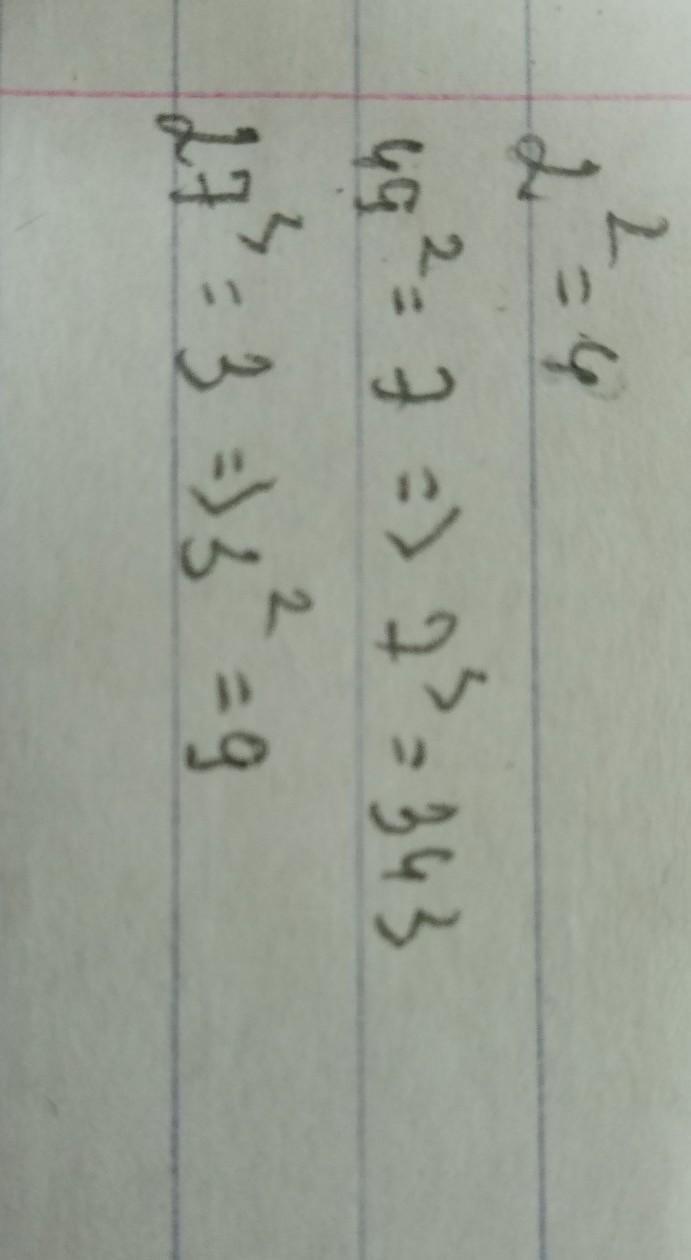 2² = 4
49² = 7 => 7³ = 343
27³ = 3 => 3² = 9